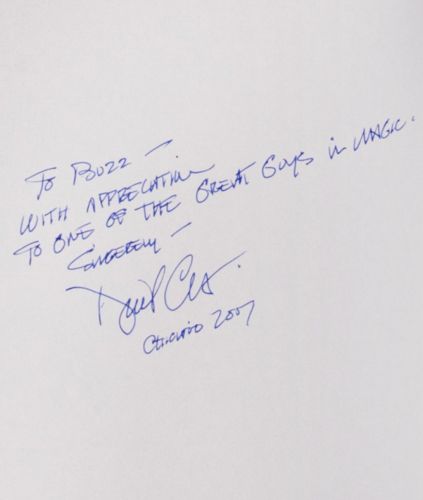 To Buzz —
WITH APPRECIATION
TO ONE OF THE GREAT GUYS in MAGIC.
Sincerely —
Chicago 2007